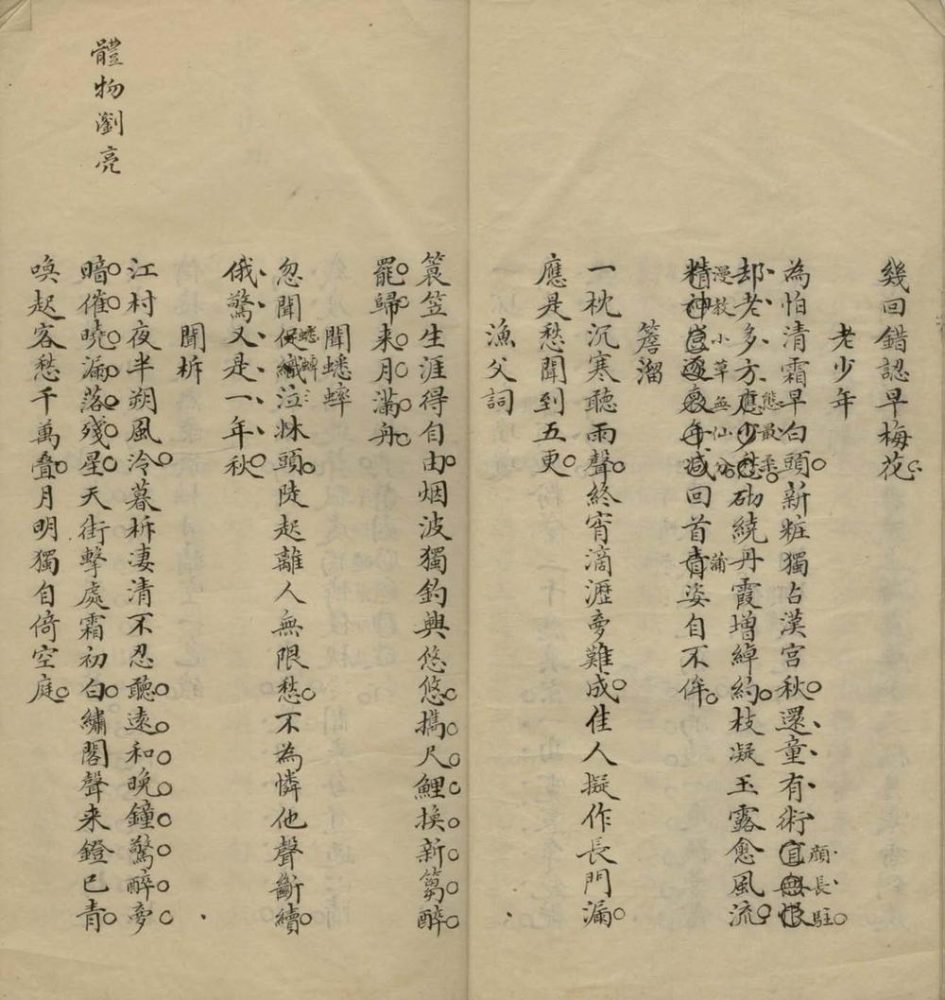 幾回錯認早梅花
老少年
為怕清霜早白頭新粧獨占漢宮秋還童有術宜無恨
顏長駐
却老多方應少愁砌繞丹霞增綽約枝凝玉露愈風流
態最柔
漫教小草無仙分
精神逐年減回首青姿自不侔
蒲
簷溜
一枕沉寒聽雨聲終宵滴瀝夢難成佳人擬作長門漏
應是愁聞到五更
漁父詞
簑笠生涯得自由烟波獨釣興悠悠攜尺鯉換新篘醉
罷歸来月滿舟
聞蟋蟀
忽聞促織泣牀頭陡起離人無限愁不為憐他聲斷續
蟋蟀
俄驚又是一年秋
聞柝
江村夜半朔風泠暮柝淒清不忍聽遠和晚鐘驚醉夢
暗催曉漏落殘星天街擊處霜初白繡閣聲来鐙已青
喚起客愁千萬疊月明獨自倚空庭
體物瀏亮